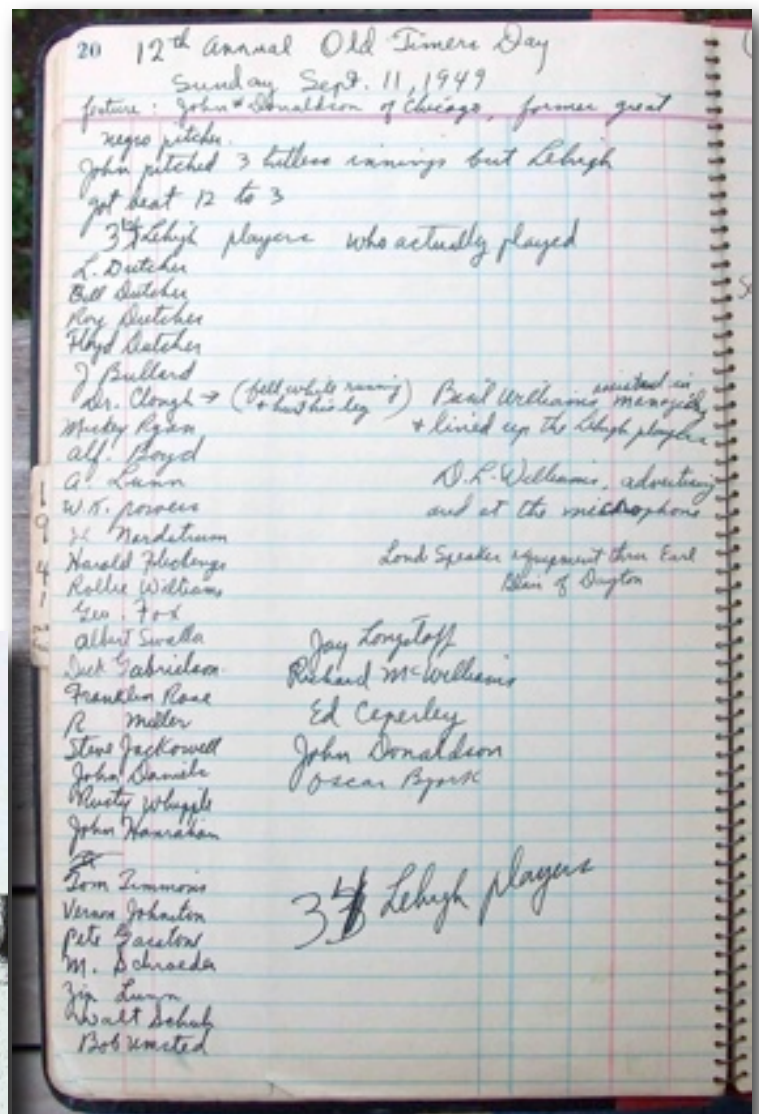 20 12th Annual Old Timers Day
Sunday Sept. 11, 1949
feature: John Donaldson of Chicago, former great
negro pitcher.
John pitched 3 hitless innings but Lehigh
got beat 12 to 3
34 Lehigh players who actually played
L. Dutcher
Bill Dutcher
Roy Dutcher
Floyd Dutcher
J Bullard
Dr. Clough → (fell while running
+ hurt his leg)
Mickey Ryan
Alf. Boyd
A. Lunn
W.K. Powers
Nordstrum
Harald
Rollie Williams
Geo. Fox
Albert Swalla
Dick Gabrielson
Franklin Rose
R Miller
Steve Jackowell
John Daniels
Rusty Whipple
John Hanrahan
Tom Timmons
Vernon Johnston
Pete
M. Schroeder
Zip Lunn
Walt Schulz
Bob Umsted
Basil Williams assisted in managing
+ lined up the Lehigh players
D.L. Williams, advertising
and at the microphone
Loud Speaker equipment thru Earl
Blair of Dayton
Jay Longstaff
Richard McWilliams
Ed Ceperley
John Donaldson
Oscar Bjork
34 Lehigh players
1
9
4
1